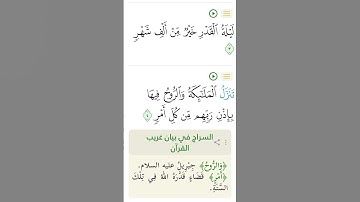 لَيْلَةُ الْقَدْرِ خَيْرٌ مِّنْ أَلْفِ شَهْرٍ
٣
تَنَزَّلُ الْمَلَٰٓئِكَةُ وَالرُّوحُ فِيهَا
بِإِذْنِ رَبِّهِم مِّن كُلِّ أَمْرٍ ٤
السراج في بيان غريب
القرآن
﴿وَالرُّوحُ﴾ جِبْرِيلُ عليه السلام.
﴿أَمْرٍ﴾ قَضَاءٍ قَدَّرَهُ اللهُ فِي تِلْكَ
السَّنَةِ.